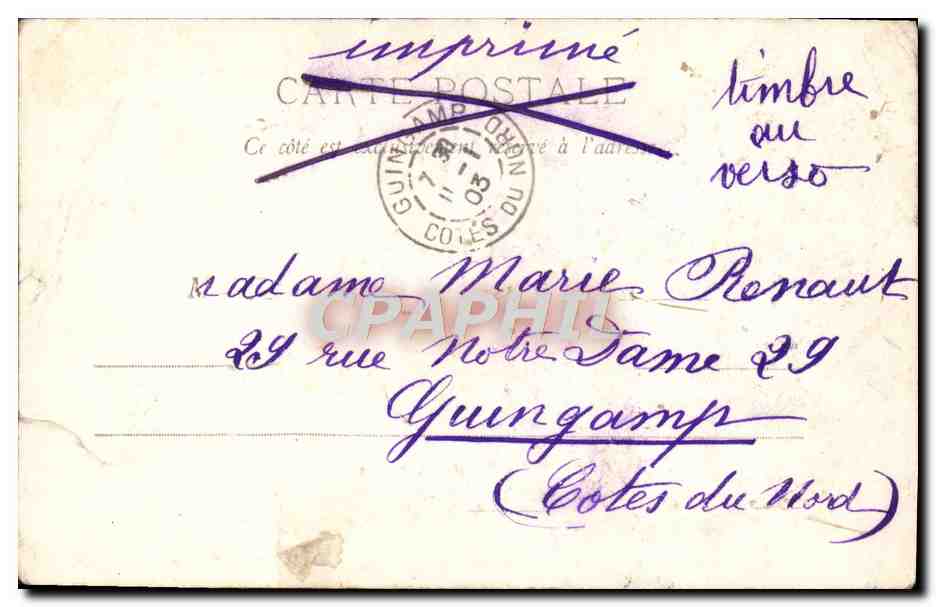 imprimé
CARTE POSTALE
Ce côté est exclusivement réservé à l'adresse
timbre
au
verso
GUINGAMP
7 30
11 - 1
03
COTES DU NORD
Madame Marie Renaut
CPAPHIL
29 rue Notre Dame 29
Guingamp
(Cotes du Nord)